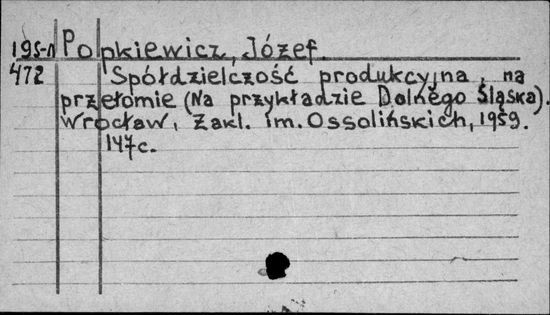 195-л Popkiewicz, Józef.
472 Spółdzielczość produkcyjna na
przełomie (Na przykładzie Dolnego Śląska).
Wrocław, Zakl. im. Ossolińskich, 1959.
147 c.